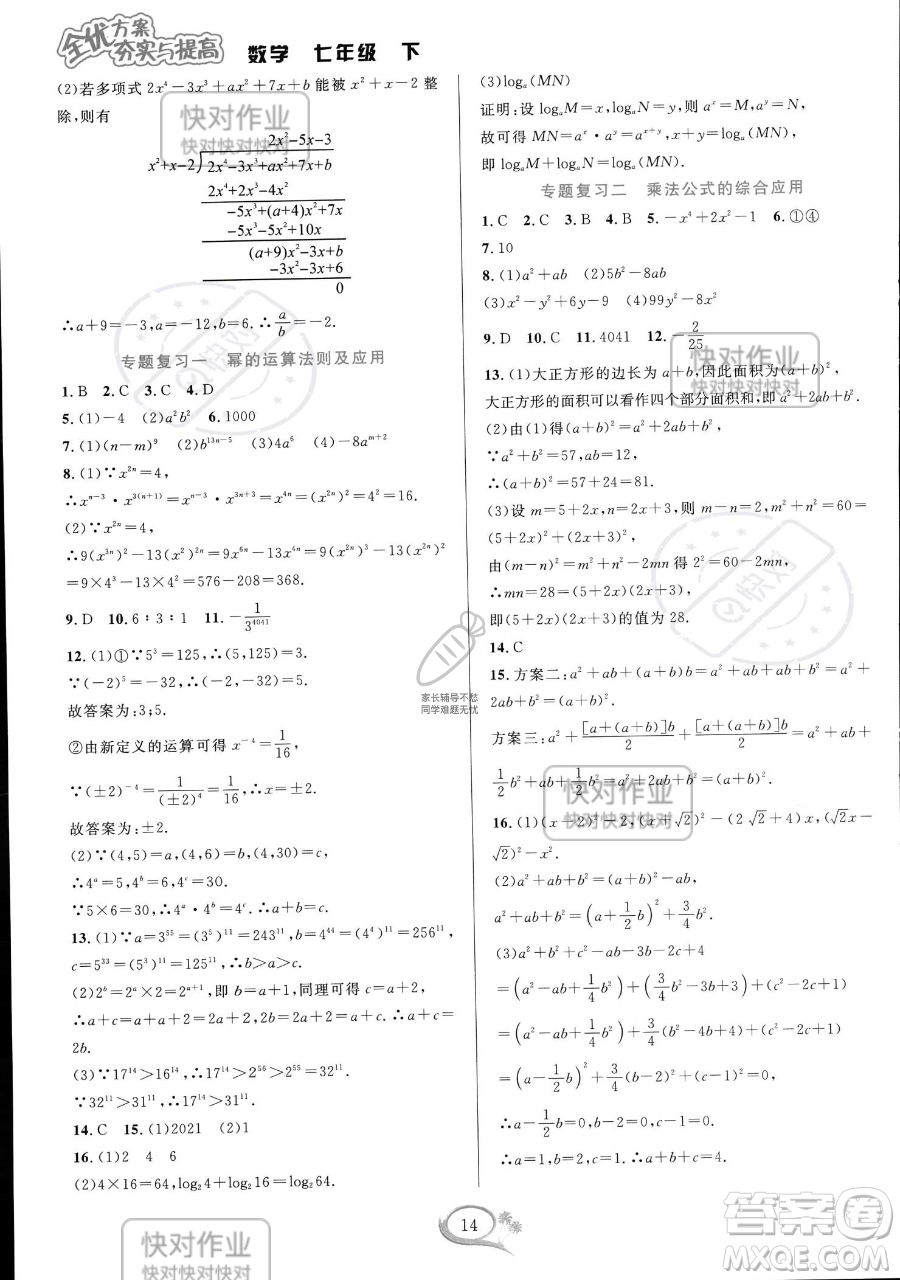 全优方案
夯实与提高 数学 七年级 下
(2)若多项式 2x⁴-3x³+ax²+7x+b 能被 x²+x-2 整
除,则有
2x²-5x-3
x²+x-2)2x⁴-3x³+ax²+7x+b
2x⁴+2x³-4x²
-5x³+(a+4)x²+7x
-5x³-5x²+10x
(a+9)x²-3x+b
-3x²-3x+6
0
∴a+9=-3,a=-12,b=6.∴a/b=-2.
专题复习一 幂的运算法则及应用
1.B 2.C 3.C 4.D
5.(1)-4 (2)a²b² 6.1000
7.(1)(n-m)⁹ (2)b¹³ⁿ⁻⁵ (3)4a⁶ (4)-8aᵐ⁺²
8.(1)∵x²ⁿ=4,
∴xⁿ⁻³·x³⁽ⁿ⁺¹⁾=xⁿ⁻³·x³ⁿ⁺³=x⁴ⁿ=(x²ⁿ)²=4²=16.
(2)∵x²ⁿ=4,
∴9(x³ⁿ)²-13(x²)²ⁿ=9x⁶ⁿ-13x⁴ⁿ=9(x²ⁿ)³-13(x²ⁿ)²
=9×4³-13×4²=576-208=368.
9.D 10.6∶3∶1 11.-1/3⁴⁰⁴¹
12.(1)①∵5³=125,∴(5,125)=3.
∵(-2)⁵=-32,∴(-2,-32)=5.
故答案为:3;5.
②由新定义的运算可得 x⁻⁴=1/16,
∵(±2)⁻⁴=1/(±2)⁴=1/16,
故答案为:±2.
(2)∵(4,5)=a,(4,6)=b,(4,30)=c,
∴4ᵃ=5,4ᵇ=6,4ᶜ=30.
∵5×6=30,∴4ᵃ·4ᵇ=4ᶜ.∴a+b=c.
13.(1)∵a=3⁵⁵=(3⁵)¹¹=243¹¹,b=4⁴⁴=(4⁴)¹¹=256¹¹,
c=5³³=(5³)¹¹=125¹¹,∴b>a>c.
(2)2ᵇ=2ᵃ×2=2ᵃ⁺¹,即 b=a+1,同理可得 c=a+2,
∴a+c=a+a+2=2a+2=2(a+1).∴a+c=
2b.
(3)∵17¹⁴>16¹⁴,∴17¹⁴>2⁵⁶>2⁵⁵.
∵32¹¹>31¹¹,∴17¹⁴>31¹¹.
14.C 15.(1)2021 (2)1
16.(1)2 4 6
(2)4×16=64,log₂4+log₂16=log₂64.
(3)logₐ(MN)
证明:设 logₐM=x,logₐN=y,则 aˣ=M,aʸ=N,
故可得 MN=aˣ·aʸ=aˣ⁺ʸ,x+y=logₐ(MN),
即 logₐM+logₐN=logₐ(MN).
专题复习二 乘法公式的综合应用
1.C 2.C 3.B 4.B 5.-x⁴+2x²-1 6.①④
7.10
8.(1)a²+ab (2)5b²-8ab
(3)x²-y²+6y-9 (4)99y²-8x²
9.D 10.C 11.4041 12.-2/25
13.(1)大正方形的边长为 a+b,因此面积为(a+b)²,
大正方形的面积可以看作四个部分面积和,即 a²+2ab+b².
(2)由(1)得(a+b)²=a²+2ab+b²,
∵a²+b²=57,ab=12,
∴(a+b)²=57+24=81.
(3)设 m=5+2x,n=2x+3,则 m-n=2,m²+n²=60=
(5+2x)²+(2x+3)²,
由(m-n)²=m²+n²-2mn 得 2²=60-2mn,
∴mn=28=(5+2x)(2x+3),
即(5+2x)(2x+3)的值为 28.
14.C
15.方案二:a²+ab+(a+b)b=a²+ab+ab+b²=a²+
2ab+b²=(a+b)².
方案三:a²+[a+(a+b)]b/2+[a+(a+b)]b/2=a²+ab+
1/2b²+ab+1/2b²=a²+2ab+b²=(a+b)².
16.(1)(x-2)²-2,(x+√2)²-(2√2+4)x,(√2x-
√2)²-x².
(2)a²+ab+b²=(a+b)²-ab,
a²+ab+b²=(a+1/2b)²+3/4b².
(3)a²+b²+c²-ab-3b-2c+4
=(a²-ab+1/4b²)+(3/4b²-3b+3)+(c²-2c+1)
=(a²-ab+1/4b²)+3/4(b²-4b+4)+(c²-2c+1)
=(a-1/2b)²+3/4(b-2)²+(c-1)²=0,
∴a-1/2b=0,b-2=0,c-1=0,
∴a=1,b=2,c=1.∴a+b+c=4.
14
快对作业
快对快对快对
快对作业
快对快对快对
快对作业
快对快对快对
快对作业
快对快对快对
快对作业
快对快对快对
快对
快对
家长辅导不愁
同学难题无忧
答案圈
MXQE.COM